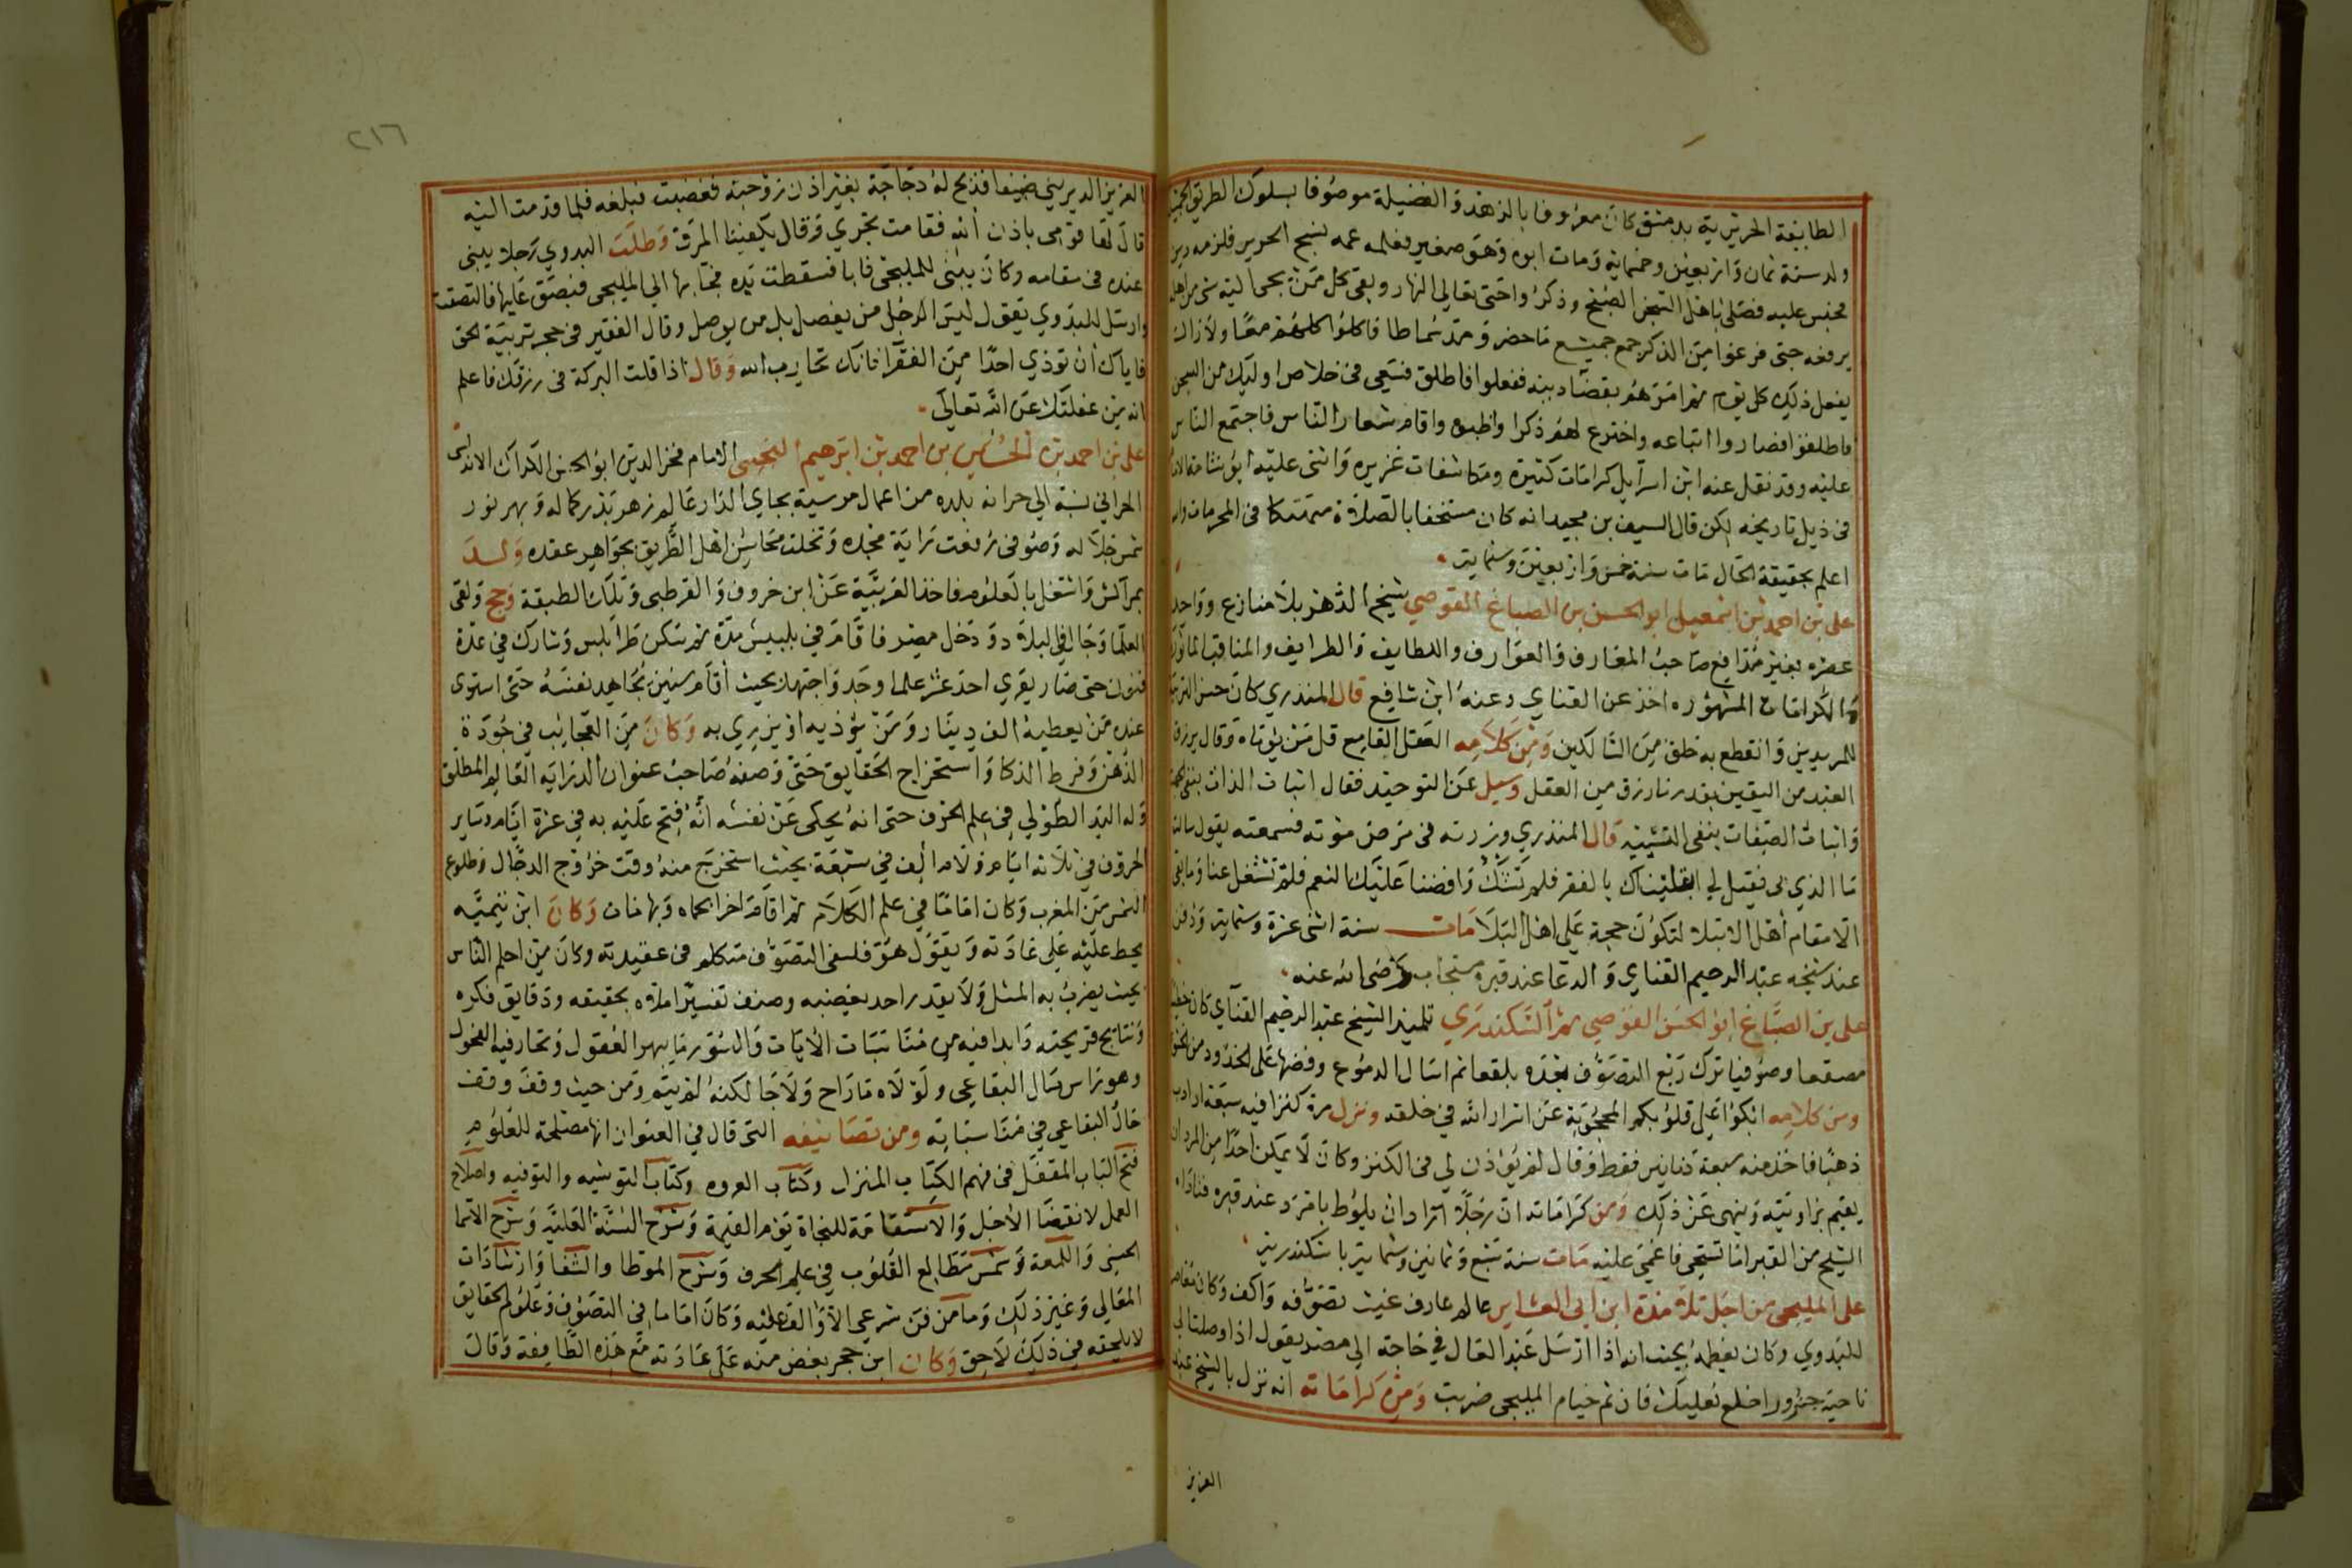 الطايفة الحريرية بدمشق كان معروفا بالزهد والفضيلة موصوفا بسلوك الطريق
ولد سنة ثمان واربعين وخمماية ومات ابوه وهو صغير فعلمه عمه نسج الحرير فلزمه دين
فحبس عليه فصلى باهل السجن الصبح وذكروا حتى تعالى النهار وبقي كل من يجي اليه شي من اهله
يرفعه حتى فرغوا من الذكر جمع جميع ما حضر ومد سماطا فاكلوا كلهم معا ولازال
يفعل ذلك كل يوم ثم امرهم بقضا دينه ففعلوا فاطلق فسعى في خلاص اوليك من السجن
فاطلقوا فصاروا اتباعه واخترع لهم ذكرا واقام شعار الناس فاجتمع الناس
عليه وقد نقل عنه ابن اسرايل كرامات كثيرة ومكاشفات غزيره واثنى عليه ابو شامة
في ذيل تاريخه لكن قال السيف بن مجيد انه كان مستخفا بالصلاة متهتكا في المحرمات
اعلم بحقيقة الحال مات سنة خمس واربعين وستماية
علي بن احمد بن اسمعيل ابو الحسن بن الصباغ القوصي شيخ الدهر بلا منازع وواحد
عصره بغير مدافع صاحب المعارف والعوارف واللطايف والطرايف والمناقب
والكرامات المشهوره اخذ عن القناي وعنه ابن شافع قال المنذري كان حسن التربية
للمريدين وانقطع به خلق من السالكين ومن كلامه العقل القامع قل من يوتاه وقال يرزق
العبد من اليقين بقدر ما رزق من العقل وسيل عن التوحيد فقال اثبات الذات بنفي
واثبات الصفات بنفي التشبيه قال المنذري وزرته في مرض موته فسمعته يقول
ما الذي بي فقيل لي ابتليناك بالفقر فلم تشك وافضنا عليك النعم فلم تشتغل عنا وما بقي
الا مقام اهل الابتلا لتكون حجة على اهل البلا مات سنة اثنى عشرة وستماية ودفن
عند شيخه عبد الرحيم القناي والدعا عند قبره مستجاب رضي الله عنه
علي بن الصباغ ابو الحسن القوصي ثم السكندري تلميذ الشيخ عبد الرحيم القناي كان
مصقعا وصوفيا ترك ربع التصوف بعده بلقعا ثم اسال الدموع وفضها على الخدود من
ومن كلامه ابكوا على قلوبكم المحجوبة عن اسرار الله في خلقه ونزل مرة كنزا فيه سبعة ارادب
ذهبا فاخذ منه سبعة دنانير فقط وقال لم يوذن لي في الكنز وكان لا يمكن احدا من المردان
يقيم بزاويته وينهى عن ذلك ومن كراماته ان رجلا اراد ان يلوط بامرد عند قبره فناداه
الشيخ من القبر اما تستحي فاغمي عليه مات سنة سبع وثمانين وستماية باسكندرية
علي المليجي من اجل تلامذة ابن ابي العشاير عالم عارف غيث تصوفه واكف وكان معاصرا
للبدوي وكان يعظمه بحيث انه اذا ارسل عبد العال في حاجة الى مصر يقول اذا وصلت الى
ناحية اخلع نعليك فان ثم خيام المليجي ضربت ومن كراماته انه نزل بالشيخ عبد
العزيز
٢١٦
العزيز الديريني ضيفا فذبح له دجاجة بغير اذن زوجته فغضبت فبلغه فلما قدمت اليه
قال لها قومي باذن الله فقامت تجري وقال يكفينا المرق وطلب البدوي رجلا يبني
عنده في مقامه وكان يبني للمليجي فابا فسقطت يده فجا بها الي المليجي فبصق عليها فالتصقت
وارسل للبدوي يقول ليس الرجل من يفصل بل من يوصل وقال الفقير في حجر تربية الحق
فاياك ان توذي احدا من الفقرا فانك تحارب الله وقال اذا قلت البركة في رزقك فاعلم
انه من غفلتك عن الله تعالى
علي بن احمد بن الحسن بن احمد بن ابرهيم التجيبي الامام فخر الدين ابو الحسن الحرالي الاندلسي
الحرالي نسبة الي حرانه بلده من اعمال مرسية بجاي الدار عالم زهر بدر كماله وبهر نور
شمس جلاله وصوفي رفعت راية مجده وتحلت محاسن اهل الطريق بجواهر عقده ولد
بمراكش واشتغل بالعلوم فاخذ العربية عن ابن خروف والقرطبي وتلك الطبقة وحج ولقي
العلما وجال في البلاد ودخل مصر فاقام في بلبيس مدة ثم سكن طرابلس وشارك في عدة
فنون حتى صار يقري احد عشر علما وجد واجتهد بحيث اقام سنين يجاهد نفسه حتى استوى
عنده من يعطيه الف دينار ومن يوذيه او يزري به وكان من العجايب في جودة
الذهن وفرط الذكا واستخراج الحقايق حتى وصفه صاحب عنوان الدراية العالم المطلق
وله اليد الطولي في علم الحرف حتى انه يحكى عن نفسه انه فتح عليه به في عزة ايام وساير
الحروف في ثلاثة ايام ولام الف في سبعة بحيث استخرج منه وقت خروج الدجال وطلوع
الشمس من المغرب وكان اماما في علم الكلام ثم اقام اخرا بحماه وبها مات وكان ابن تيميه
يحط عليه على عادته ويقول هو فلسفي التصوف متكلم في عقيدته وكان من احلم الناس
بحيث يضرب به المثل ولا يقدر احد يغضبه وصنف تفسيرا ملاوه بحقيقه ودقايق فكره
ونتايج قريحته وابدا فيه من مناسبات الايات والسور ما يبهر العقول وتحار فيه الفحول
وهو راس مال البقاعي ولولاه ما راح ولا جا لكنه لم يتم ومن حيث وقف وقف
حال البقاعي في مناسباته ومن تصانيفه التي قال في العنوان انها مصلحة للعلوم
فتح الباب المقفل في فهم الكتاب المنزل وكتاب العروه وكتاب التوشيه والتوفيه واصلاح
العمل لانقضا الاجل والاستقامة للنجاة يوم القيمة وشرح السنة العلية وشرح الاسما
الحسنى واللمعة وشمس مطالع القلوب في علم الحرف وشرح الموطا والشفا وارشادات
المعالي وغير ذلك وما من فن شرعي الا والف عليه وكان اماما في التصوف وعلوم الحقايق
لا يلحقه في ذلك لاحق وكان ابن حجر يغض منه على عادته مع هذه الطايفة وقال